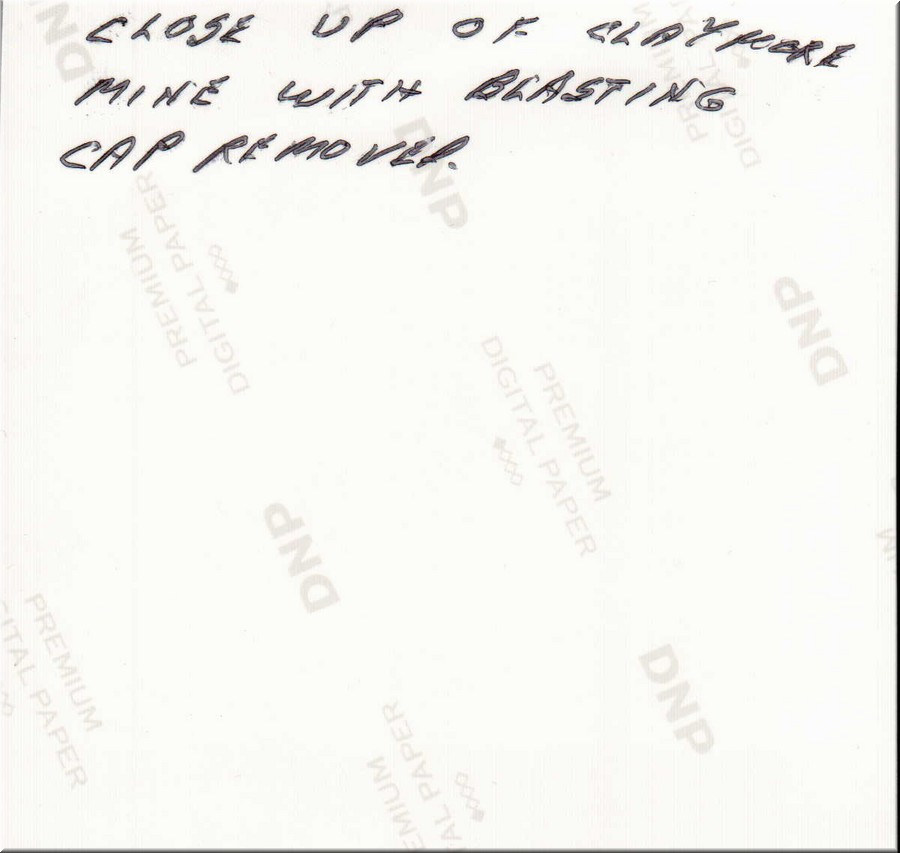 CLOSE UP OF CLAYMORE
MINE WITH BLASTING
CAP REMOVED.
DNP
DNP
PREMIUM
DIGITAL PAPER
DNP
PREMIUM
DIGITAL PAPER
DNP
PREMIUM
DIGITAL PAPER
DNP
PREMIUM
DIGITAL PAPER
DNP